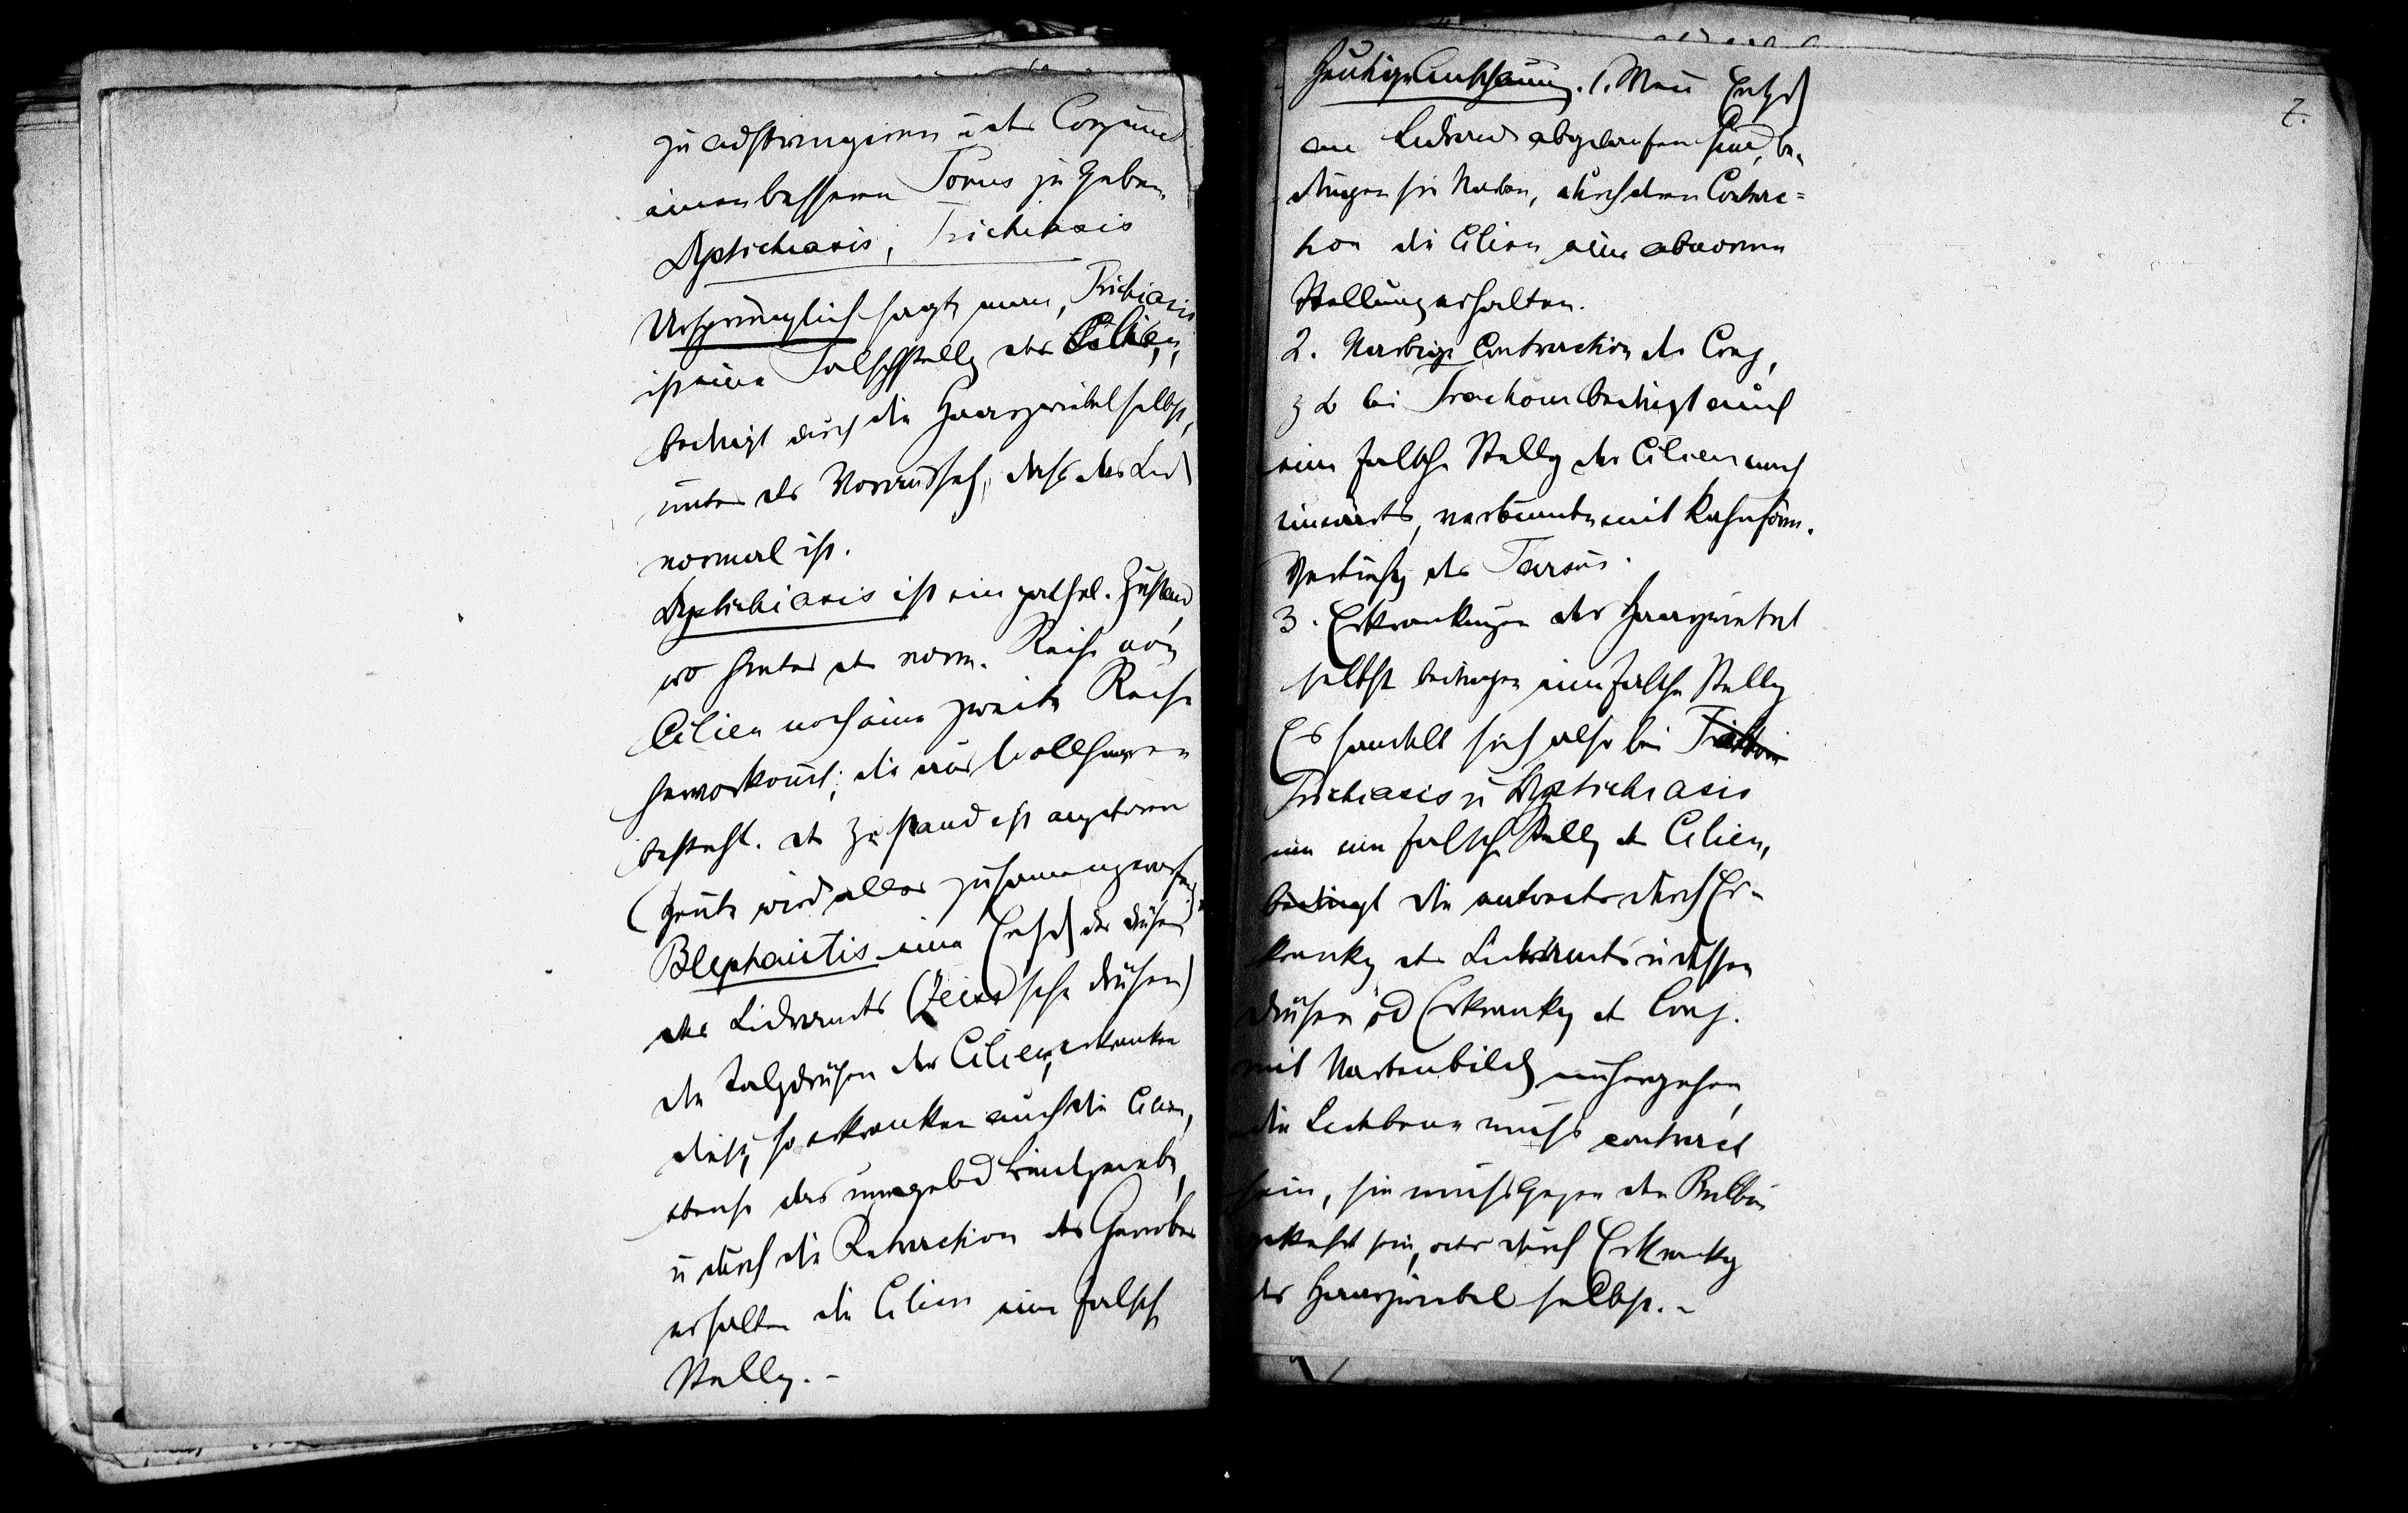 zu adstringiren u der Conjunct
einen bessern Tonus zu geben
Dystichiasis, Trichiasis
Ursprünglich sagte man, Trichiasis
ist eine Falschstellg der Cilien,
bedingt durch die Haarzwiebel selbst,
unter der Voraussetz, dass das Lid
normal ist.
Dystichiasis ist ein pathol. Zustand
wo hinter der norm. Reihe von
Cilien noch eine zweite Reihe
hervorkomt; die aus Wollhaaren
besteht. der Zustand ist angeboren
(heute wird alles zusammengeworfen)
Blepharitis eine Entzd der Drüsen
des Lidrandes (Zeiss'sche Drüsen)
den Talgdrüsen der Cilien, erkranken
diese, so erkranken auch die Cilien,
ebenso das umgebd Bindgewebe,
u durch die Retraction des Gewebes
erhalten die Cilien eine falsche
Stellg. -
7.
Heutige Anschauung. 1. Wenn Entzd
am Lidrand abgelaufen sind, be-
dingen sie Narben, durch deren Contrac=
tion die Cilien eine abnorme
Stellung erhalten.
2. Narbige Contraction der Conj,
z B bei Trachom bedingt auch
eine falsche Stellg der Cilien nach
einwärts, verbunden mit kahnförm.
des Tarsus.
3. Erkrankungen der Haarzwiebel
selbst bedingen eine falsche Stellg
Es handelt sich also bei
Trichiasis u Dystichiasis
um eine falsche Stellg der Cilien,
bedingt die entweder durch Er-
krankg des Lidrandes u dessen
Drüsen od Erkrankg der Conj.
mit Narbenbildg einhergehen,
die muss contract
sein, sie muss gegen den Bulbus
gekehrt sein, oder durch Erkrankg
der Haarzwiebel selbst. -